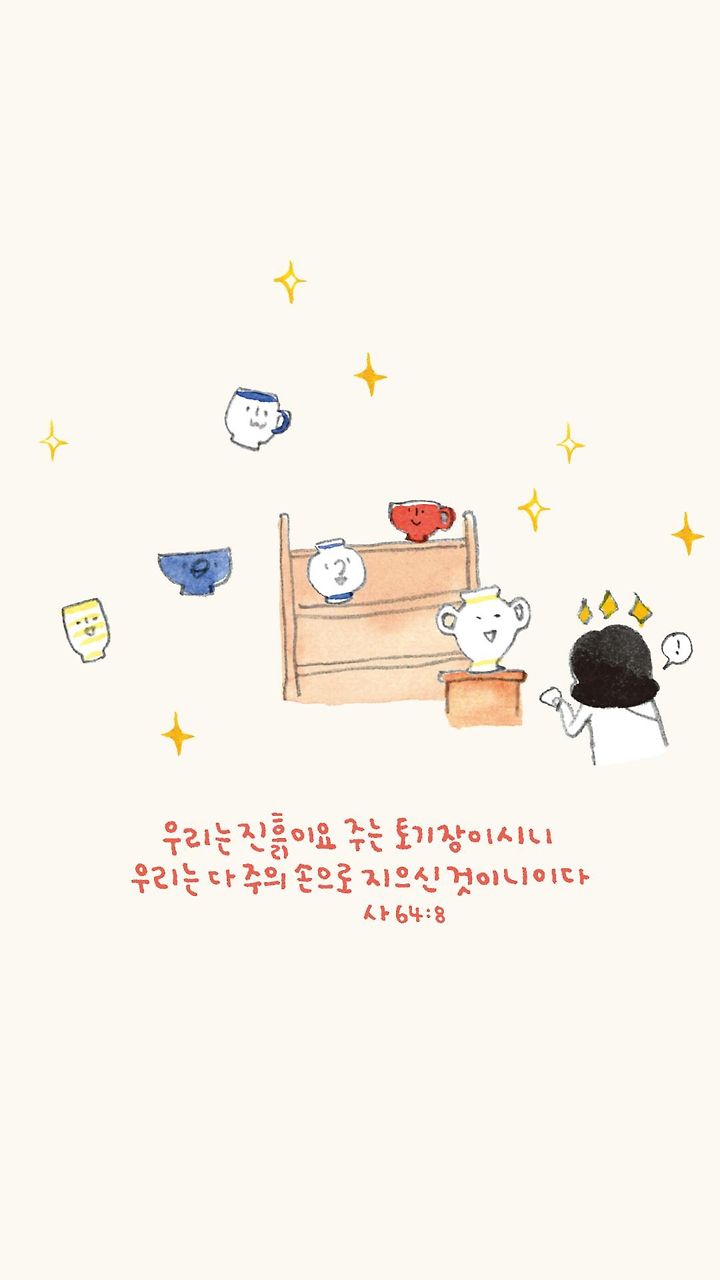 !
우리는 진흙이요 주는 토기장이시니
우리는 다 주의 손으로 지으신 것이니이다
사 64:8